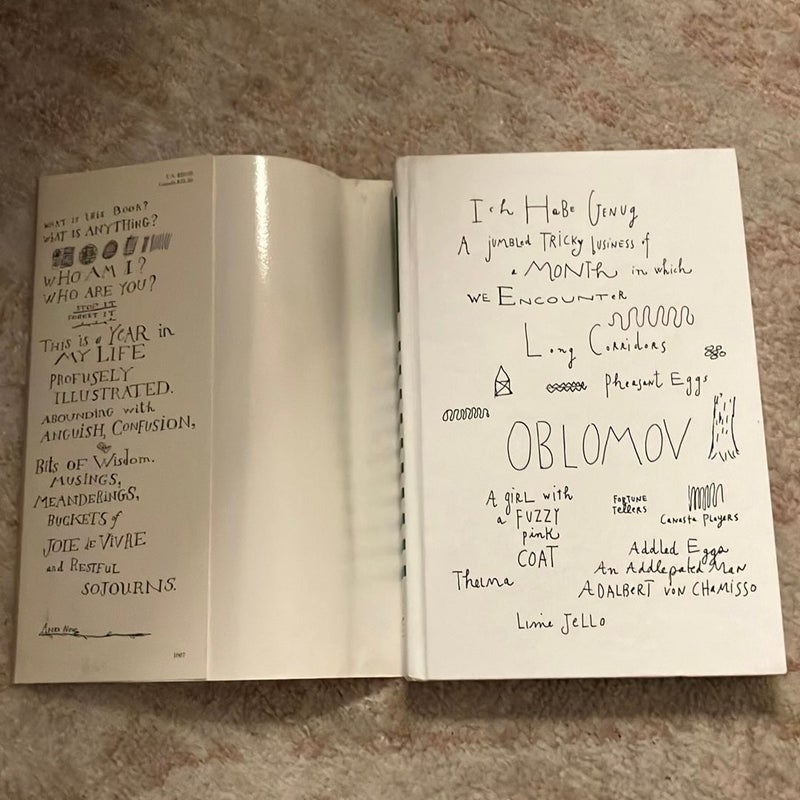 WHAT IS THIS BOOK?
WHAT IS ANYTHING?
WHO AM I?
WHO ARE YOU?
STOP IT
FORGET IT
THIS is a YEAR in
MY LIFE
PROFUSELY
ILLUSTRATED.
ABOUNDING with
ANGUISH, CONFUSION,
Bits OF WISDOM.
MUSINGS,
MEANDERINGS,
BUCKETS of
JOIE de VIVRE
and RESTFUL
SOJOURNS.
1007
Ich HaBe GENUG
A jumbled TRICKY business of
a MONTH in which
WE ENCOUNTeR
Long Corridors
Pheasant Eggs
OBLOMOV
A giRL with
a FUZZY
pink
COAT
FORTUNE
Tellers
Canasta Players
Thelma
Addled Eggs
An Addlepated Man
ADALBERT von CHaMISSO
Lime JeLLO